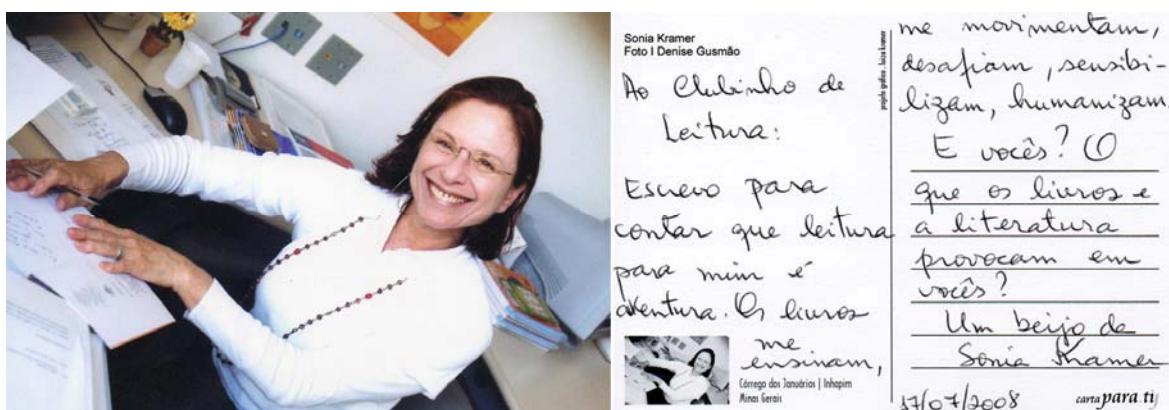 Sonia Kramer
Foto I Denise Gusmão
Ao Clubinho de
Leitura:
Escrevo para
contar que leitura
para mim é
aventura. Os livros
me
ensinam,
Córrego dos Januários | Inhapim
Minas Gerais
projeto gráfico . luiza kramer
me movimentam,
desafiam, sensibi-
lizam, humanizam.
E vocês? O
que os livros e
a literatura
provocam em
vocês?
Um beijo da
Sonia Kramer
17/07/2008
carta para ti